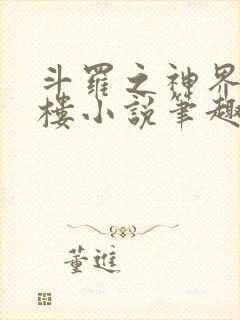 斗羅之神界
樓小說筆趣
董進